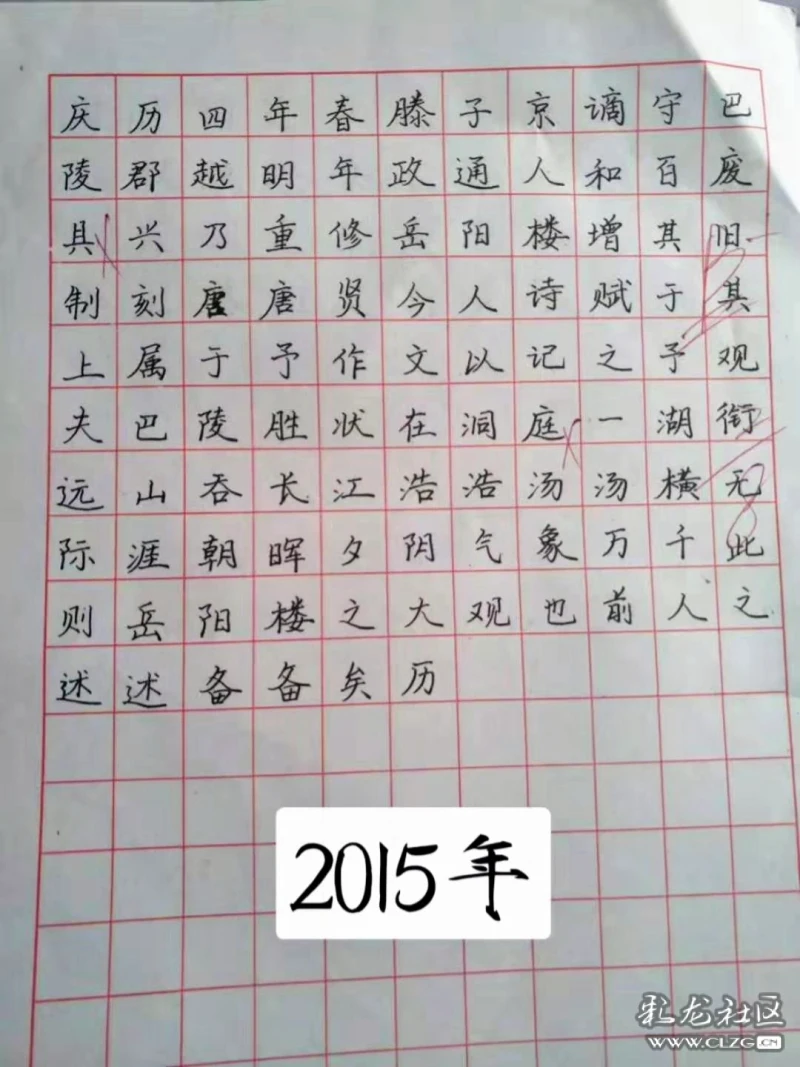 庆历四年春滕子京谪守巴
陵郡越明年政通人和百废
具兴乃重修岳阳楼增其旧
制刻唐唐贤今人诗赋于其
上属于予作文以记之予观
夫巴陵胜状在洞庭一湖衔
远山吞长江浩浩汤汤横无
际涯朝晖夕阴气象万千此
则岳阳楼之大观也前人之
述述备备矣历
2015年
彩龙社区
www.CLZG.CN